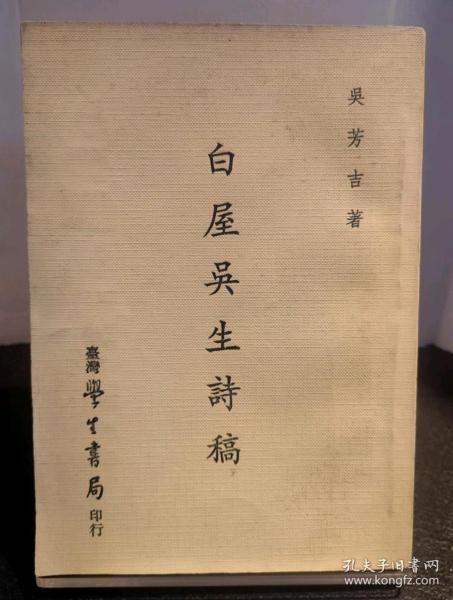 吳芳吉著
白屋吳生詩稿
臺灣學生書局印行
孔夫子旧书网
www.kongfz.com